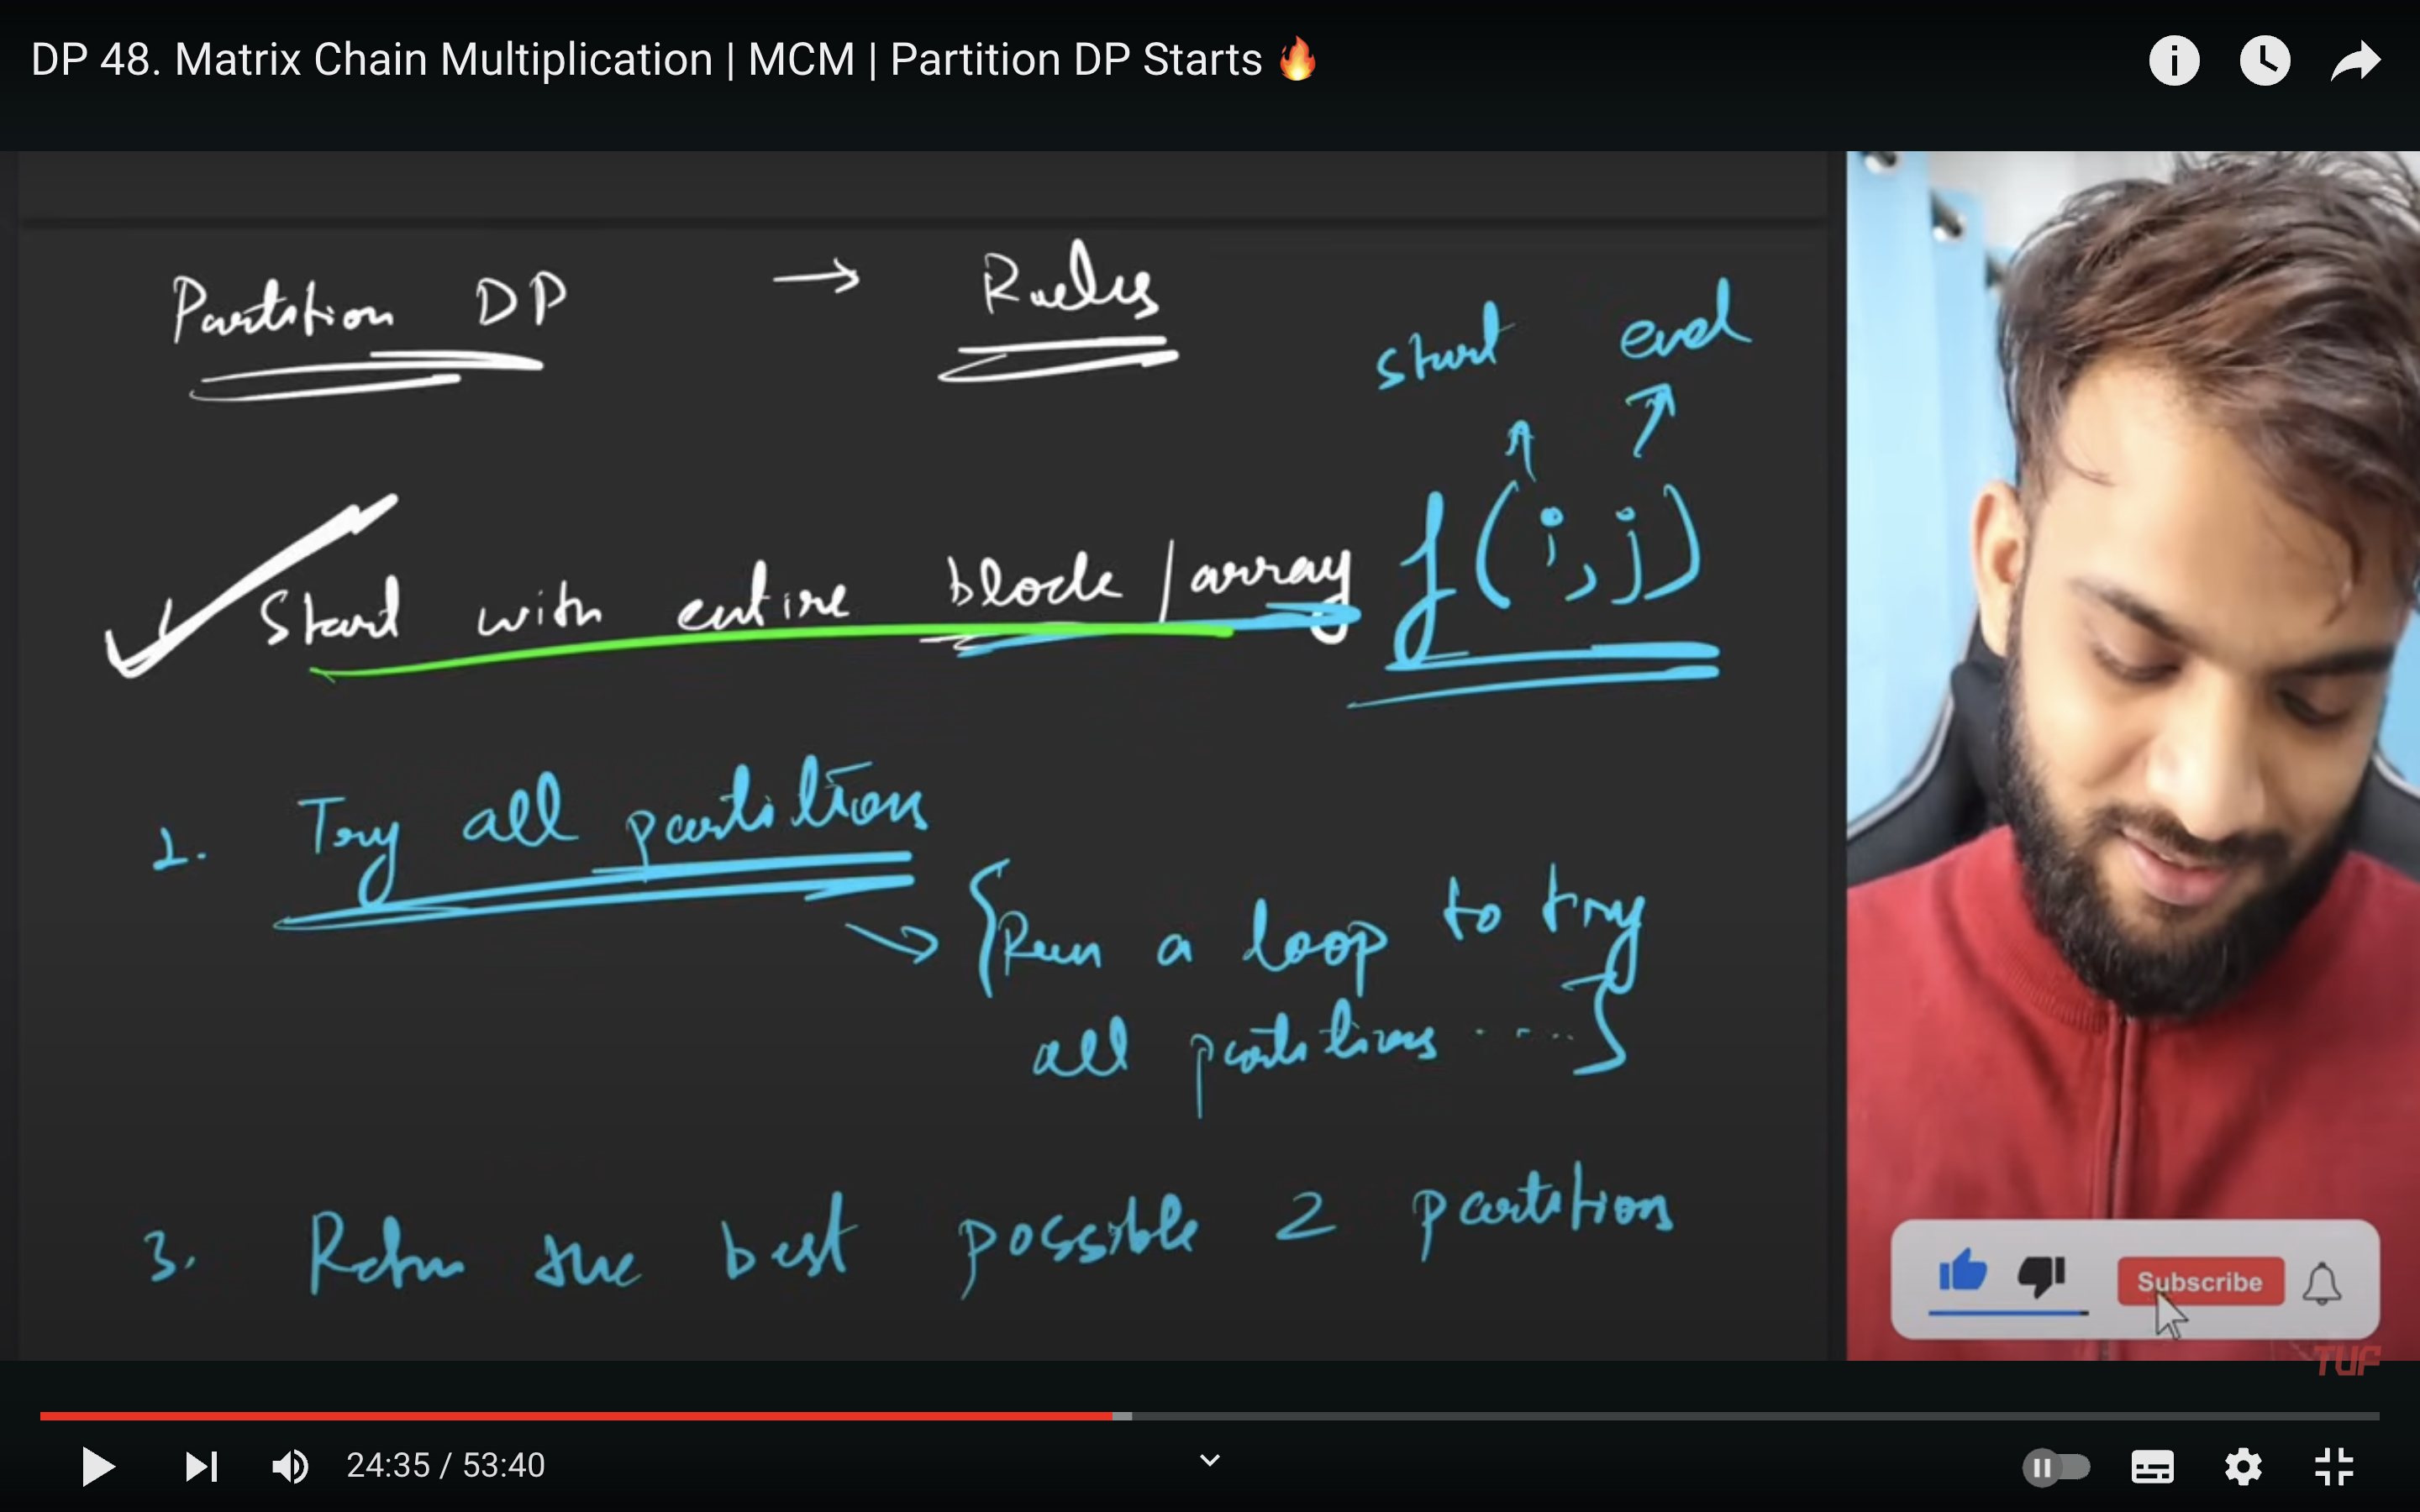 DP 48. Matrix Chain Multiplication | MCM | Partition DP Starts 🔥
Partition DP → Rules
start end
Start with entire block / array f(i,j)
2. Try all partitions
→ {Run a loop to try
all partitions ....}
3. Return the best possible 2 partition
Subscribe
TUF
24:35 / 53:40